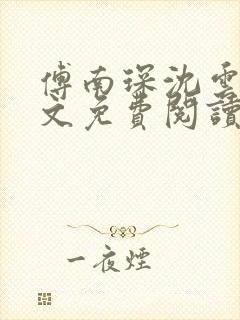 傅南琛沈雲
文免費閱讀
一夜煙